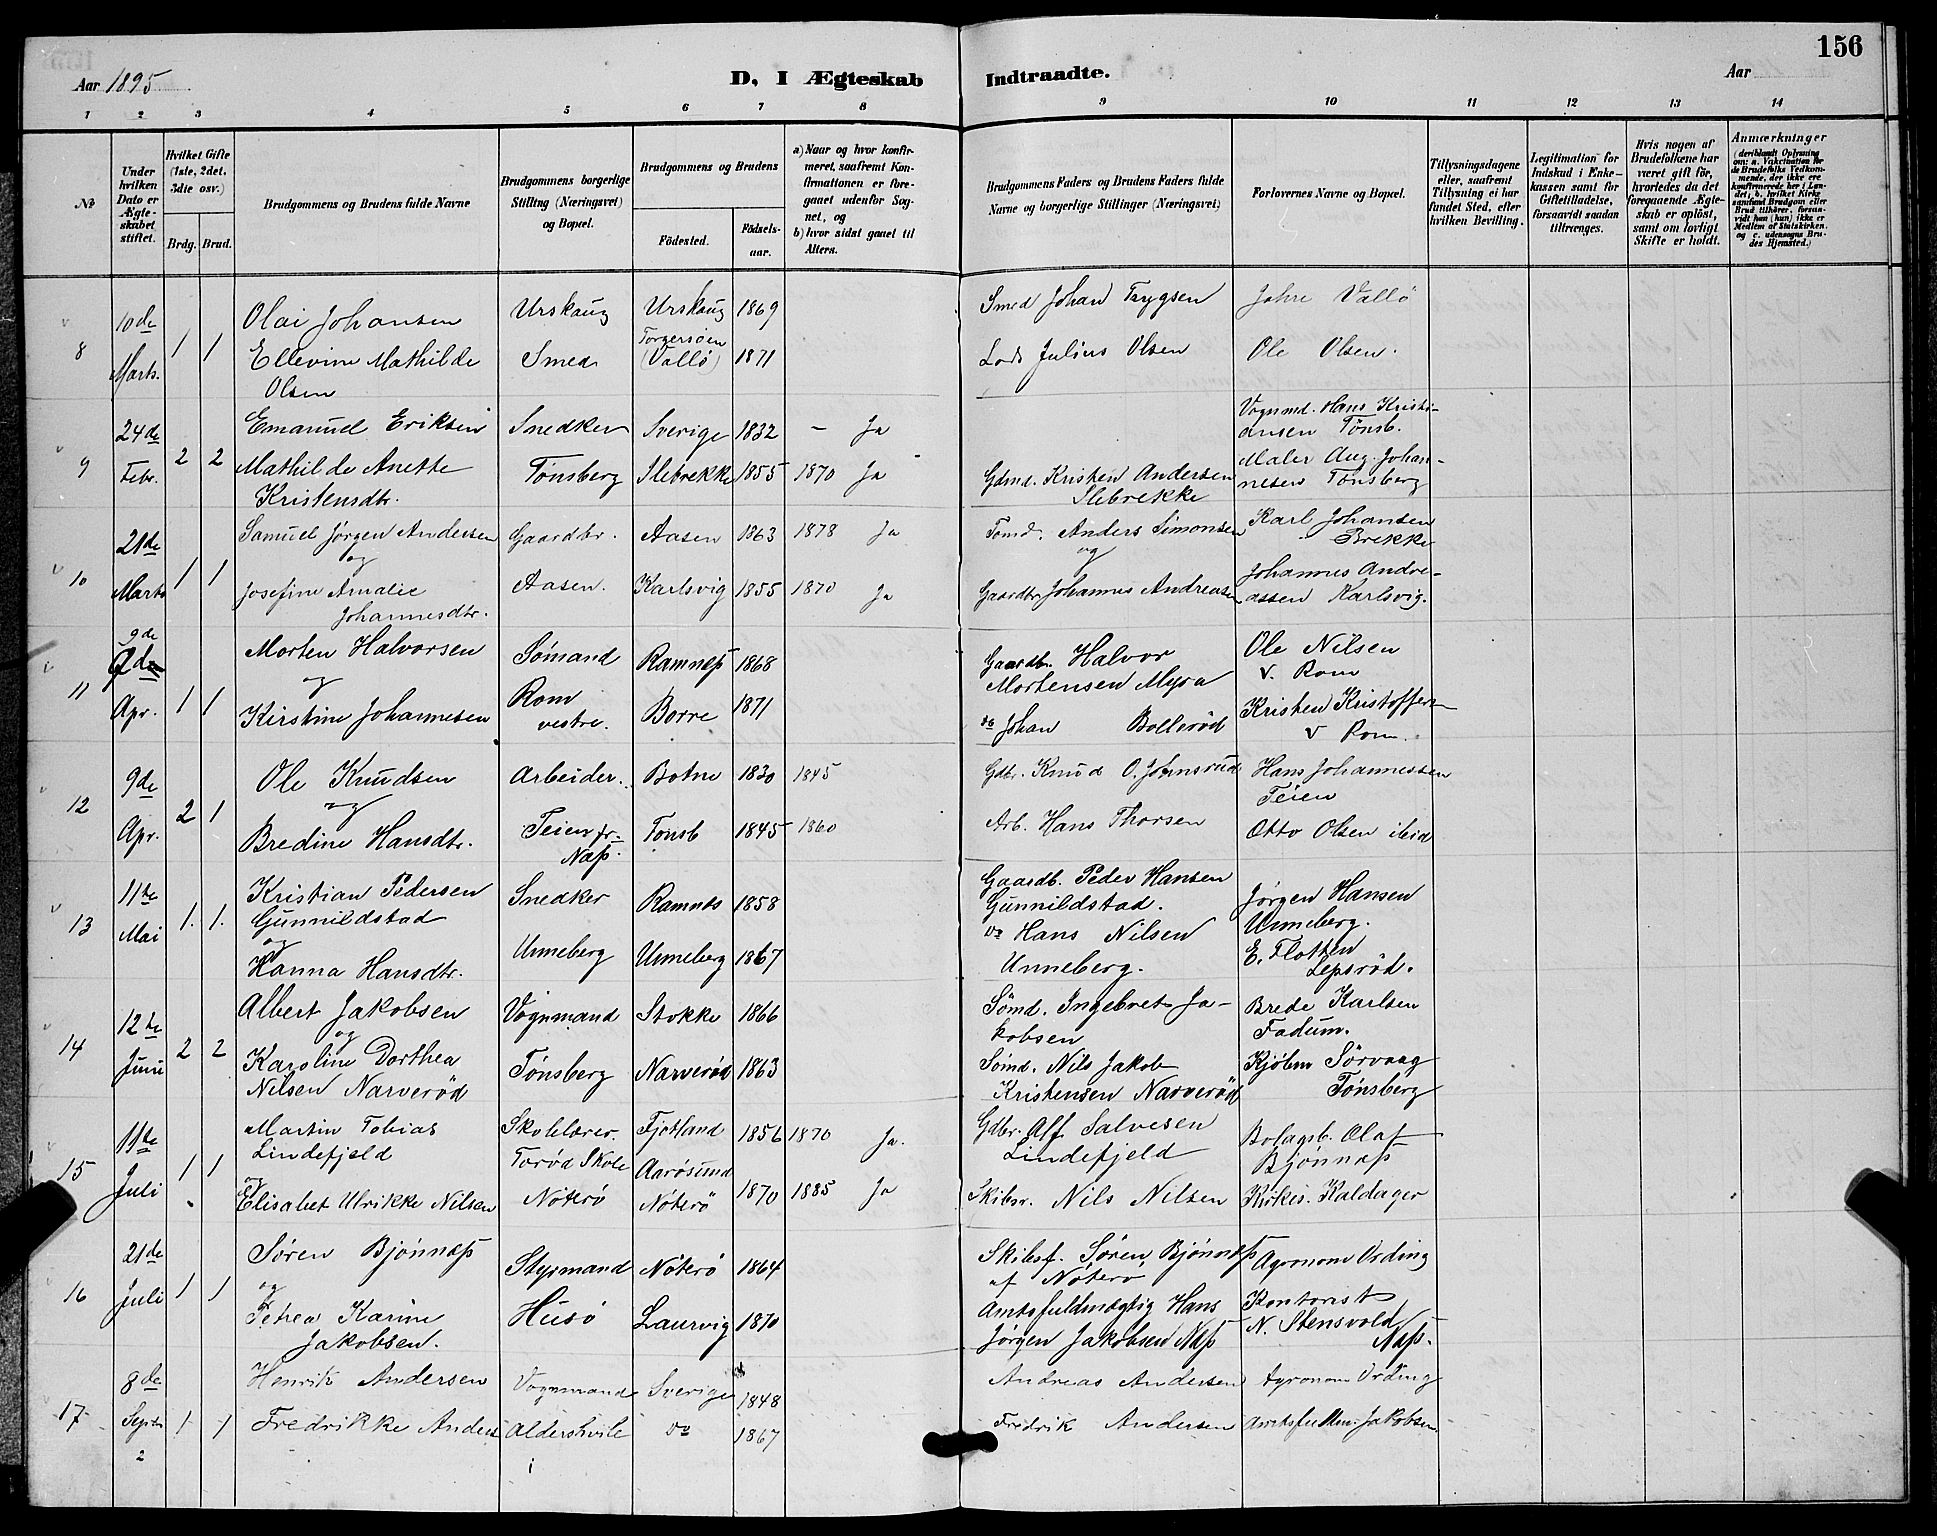 156
Aar 1895
D. I Ægteskab Indtraadte.
Aar
1 2 3 4 5 6 7 8 9 10 11 12 13 14
No
Under hvilken Dato er Ægteskabet stiftet.
Hvilket Gifte (1ste, 2det, 3die osv.)
Brdg. Brud.
Brudgommens og Brudens fulde Navne
Brudgommens borgerlige Stilling (Næringsvei) og Bopæl.
Brudgommens og Brudens
Fødested.
Fødselsaar.
a) Naar og hvor konfirmeret, saafremt Konfirmationen er foregaaet udenfor Sognet, og
b) hvor sidst gaaet til Alters.
Brudgommens Faders og Brudens Faders fulde Navne og borgerlige Stillinger (Næringsvei)
Forlovernes Navne og Bopæl.
Tillysningsdagene eller, saafremt Tillysning ei har fundet Sted, efter hvilken Bevilling.
Legitimation for Indskud i Enkekassen samt for Giftetilladelse, forsaavidt saadan tiltrænges.
Hvis nogen af Brudefolkene har været gift før, hvorledes da det foregaaende Ægteskab er opløst, samt om lovligt Skifte er holdt.
Anmærkninger
(deriblandt Oplysning om: a. Vakcination for de Brudefolks Vedkommende, der ikke ere konfirmerede her i Landet; b. hvilket Kirkesamfund Brudgom eller Brud tilhører, forsaavidt han (hun) ikke er Medlem af Statskirken, og c. udensogns Brudes Hjemsted.)
8 10de Marts. 1 1
Olai Johansen Urskaug Urskaug 1869 Smed Johan Trygsen Jahre Vallö
Ellevine Mathilde Olsen Smed Torgersöen (Vallö) 1871 Lods Julius Olsen Ole Olsen.
9 24de Febr. 2 2
Emanuel Eriksen Snedker Sverige 1832 – Ja Vognmd. Hans Kristiansen Tönsb.
Mathilde Anette Kristensdtr. Tønsberg Slebrekke 1855 1870 Ja Gdmd. Kristen Andersen Slebrekke Maler Aug. Johannesen Tönsberg
10 21de Marts 1 1
Samuel Jørgen Andersen Gaardbr. Aasen 1863 1878 Ja Tømd. Anders Simonsen Karl Johansen Brekke
og og
Josefine Amalie Johannesdtr. Aasen. Karlsvig 1855 1870 Ja Gaardbr Johannes Andreasen Johannes Andreassen Karlsvig.
11 9de Apr. 1 1
Morten Halvorsen Sömand Ramnæs 1868 Gaardbr. Halvor Mortensen Myra Ole Nilsen v. Rom
og
Kirstine Johannesen Rom vestre. Borre 1871 do Johan Bollerød Kristen Kristoffersen v Rom.
12 9de Apr. 2 1
Ole Knudsen Arbeider. Botne 1830 1845 Gdbr. Knud O. Johnsrud Hans Johannessen Teien
og
Bredine Hansdtr. Teien fr. Næs. Tönsb 1845 1860 Arb. Hans Thorsen Otto Olsen ibid
13 11te Mai 1. 1.
Kristian Pedersen Gunnildstad Snedker Ramnes 1858 Gaardb. Peder Hansen Gunnildstad. Jörgen Hansen Unneberg.
og
Hanna Hansdtr. Unneberg Unneberg 1867 do Hans Nilsen Unneberg. E. Flotten Lepsröd.
14 12te Juni 2 2
Albert Jakobsen Vognmand Stokke 1866 Sömd. Ingebret Jakobsen Brede Karlsen Fadum.
og
Karoline Dorthea Nilsen Narveröd Tønsberg Narveröd 1863 Sömd. Nils Jakob Kristensen Narveröd Kjöbm Sörvaag Tönsberg
15 11te Juli 1 1
Martin Tobias Lindefjeld Skolelærer. Torød Skole Fjotland 1856 1870 Ja. Gdbr. Alf Salvesen Lindefjeld Bolagsb. Olaf Bjönnæs
og
Elisabet Ulrikke Nilsen Nöterø Aarösund Nöterö 1870 1885 Ja Skibsr. Nils Nilsen Kirkes. Kaldager
16 21de Juli 1 1
Søren Bjönnæs Styrmand Nöterø 1864 Skibsf. Sören Bjönnæs af Nöterö Agronom Vrding
og
Petrea Karine Jakobsen. Husø Laurvig 1870 Amtsfuldmægtig Hans Jörgen Jakobsen Næs Kontorist N. Stensvold Næs.
17 8de Septbr 1 1
Henrik Andersen Vognmand Sverige 1848 Andreas Andersen Agronom Vrding
Fredrikke Anders Aldershvile do 1867 Fredrik Andersen Amtsfuldm. Jakobsen